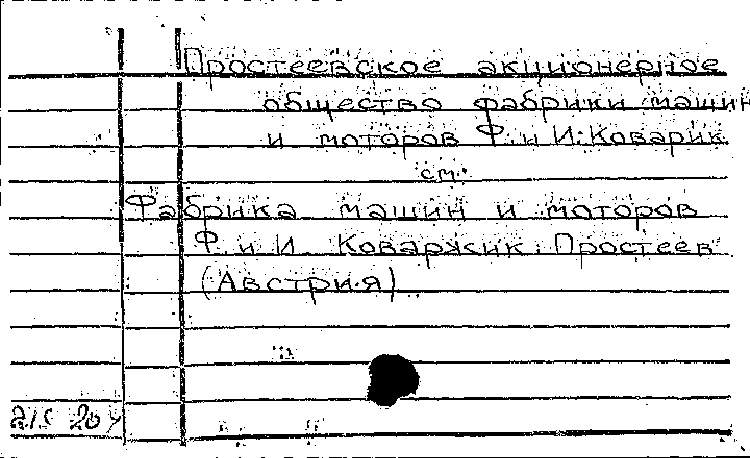 Простеевское акционерное
общество фабрики машин
и моторов Ф. и И. Коварик
см.
Фабрика машин и моторов
Ф и И Коваржик. Простеев
(Австрия)